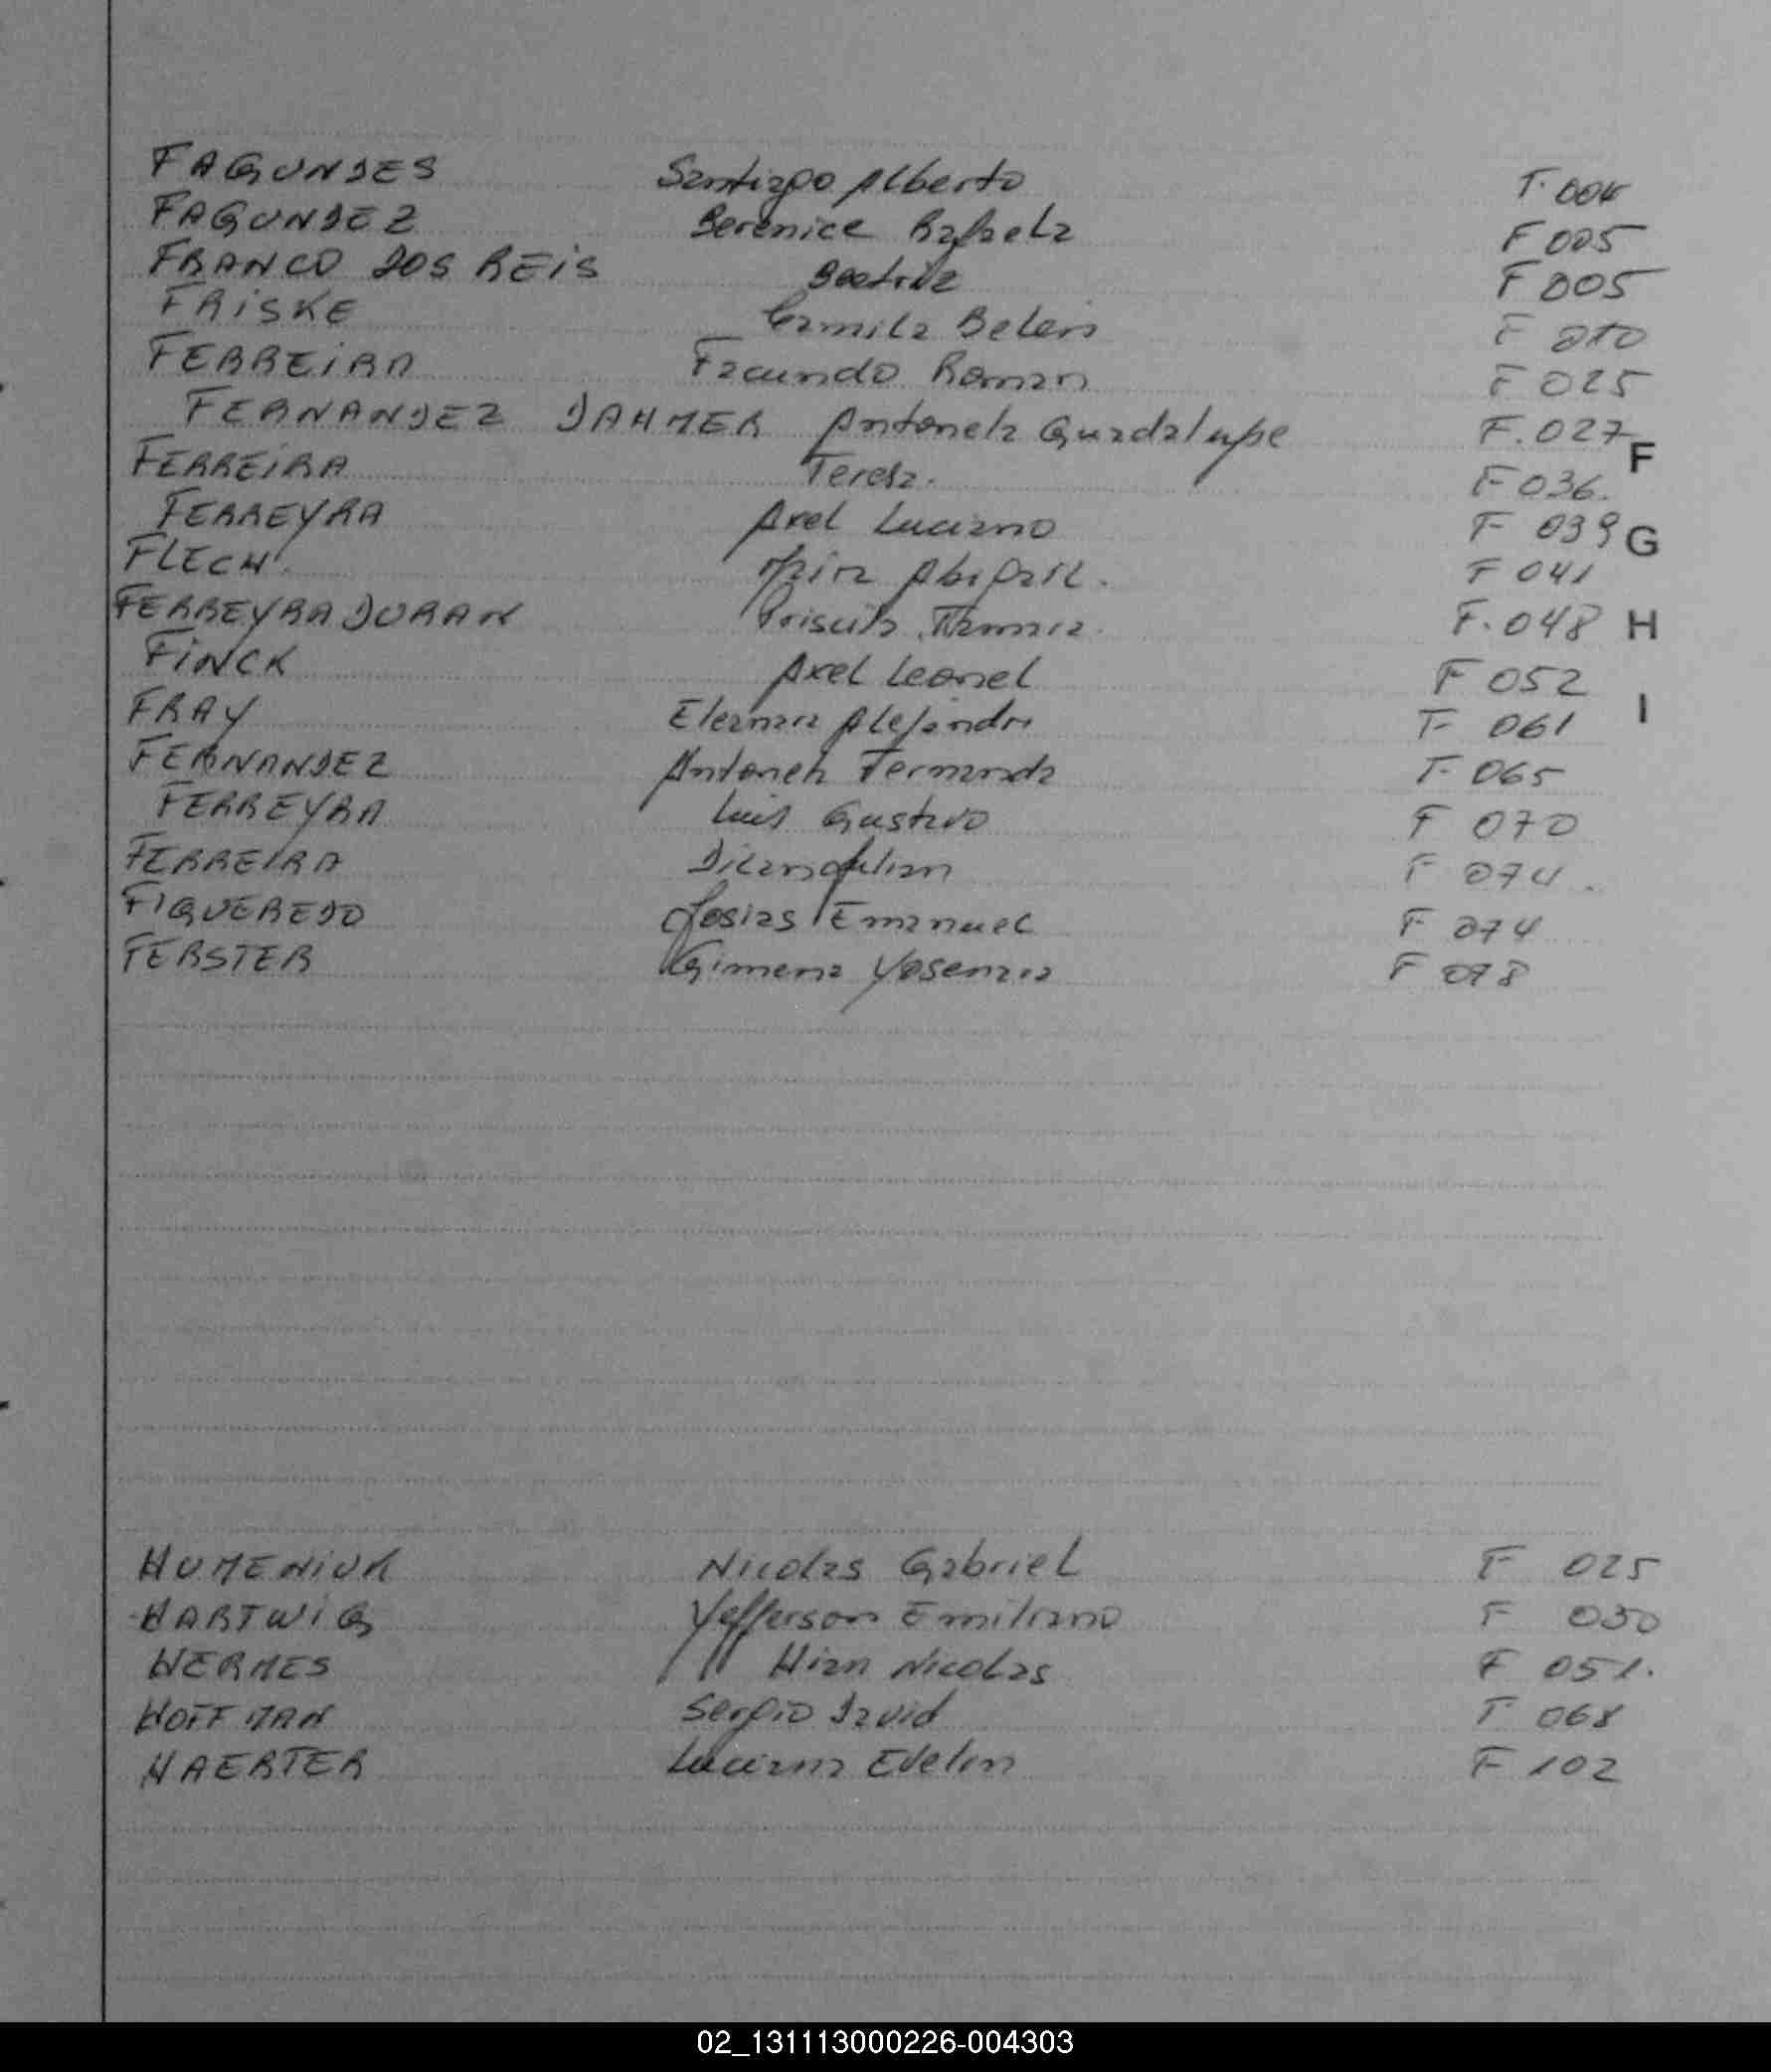 FAGUNDES Santiago Alberto F. 004
FAGUNDEZ Berenice Rafaela F 005
FRANCO DOS REIS Beatriz F 005
FRISKE Camila Belen F 010
FERREIRA Facundo Roman F 025
FERNANDEZ DAHMER Antonela Guadalupe F. 027
F
FERREIRA Teresa. F 036.
FERREYRA Axel Luciano F 039
G
FLECH Abigail. F 041
FERREYRA DURAN Priscila F. 048
H
FINCK Axel Leonel F 052
FRAY Eleanara Alejandra F 061
I
FERNANDEZ Antonela Fernanda F. 065
FERREYRA Luis Gustavo F 070
FERREIRA Dilan Julian F 074.
FIGUEREDO Josias Emanuel F 074
FERSTER Gimena Yosenaia F 078
HUMENIUK Nicolas Gabriel F 025
HARTWIG Yefferson Emiliano F 030
HERMES Hian Nicolas F 051.
HOFFMAN Sergio David F 068
HAERTER Luciana Evelin F 102
02_131113000226-004303